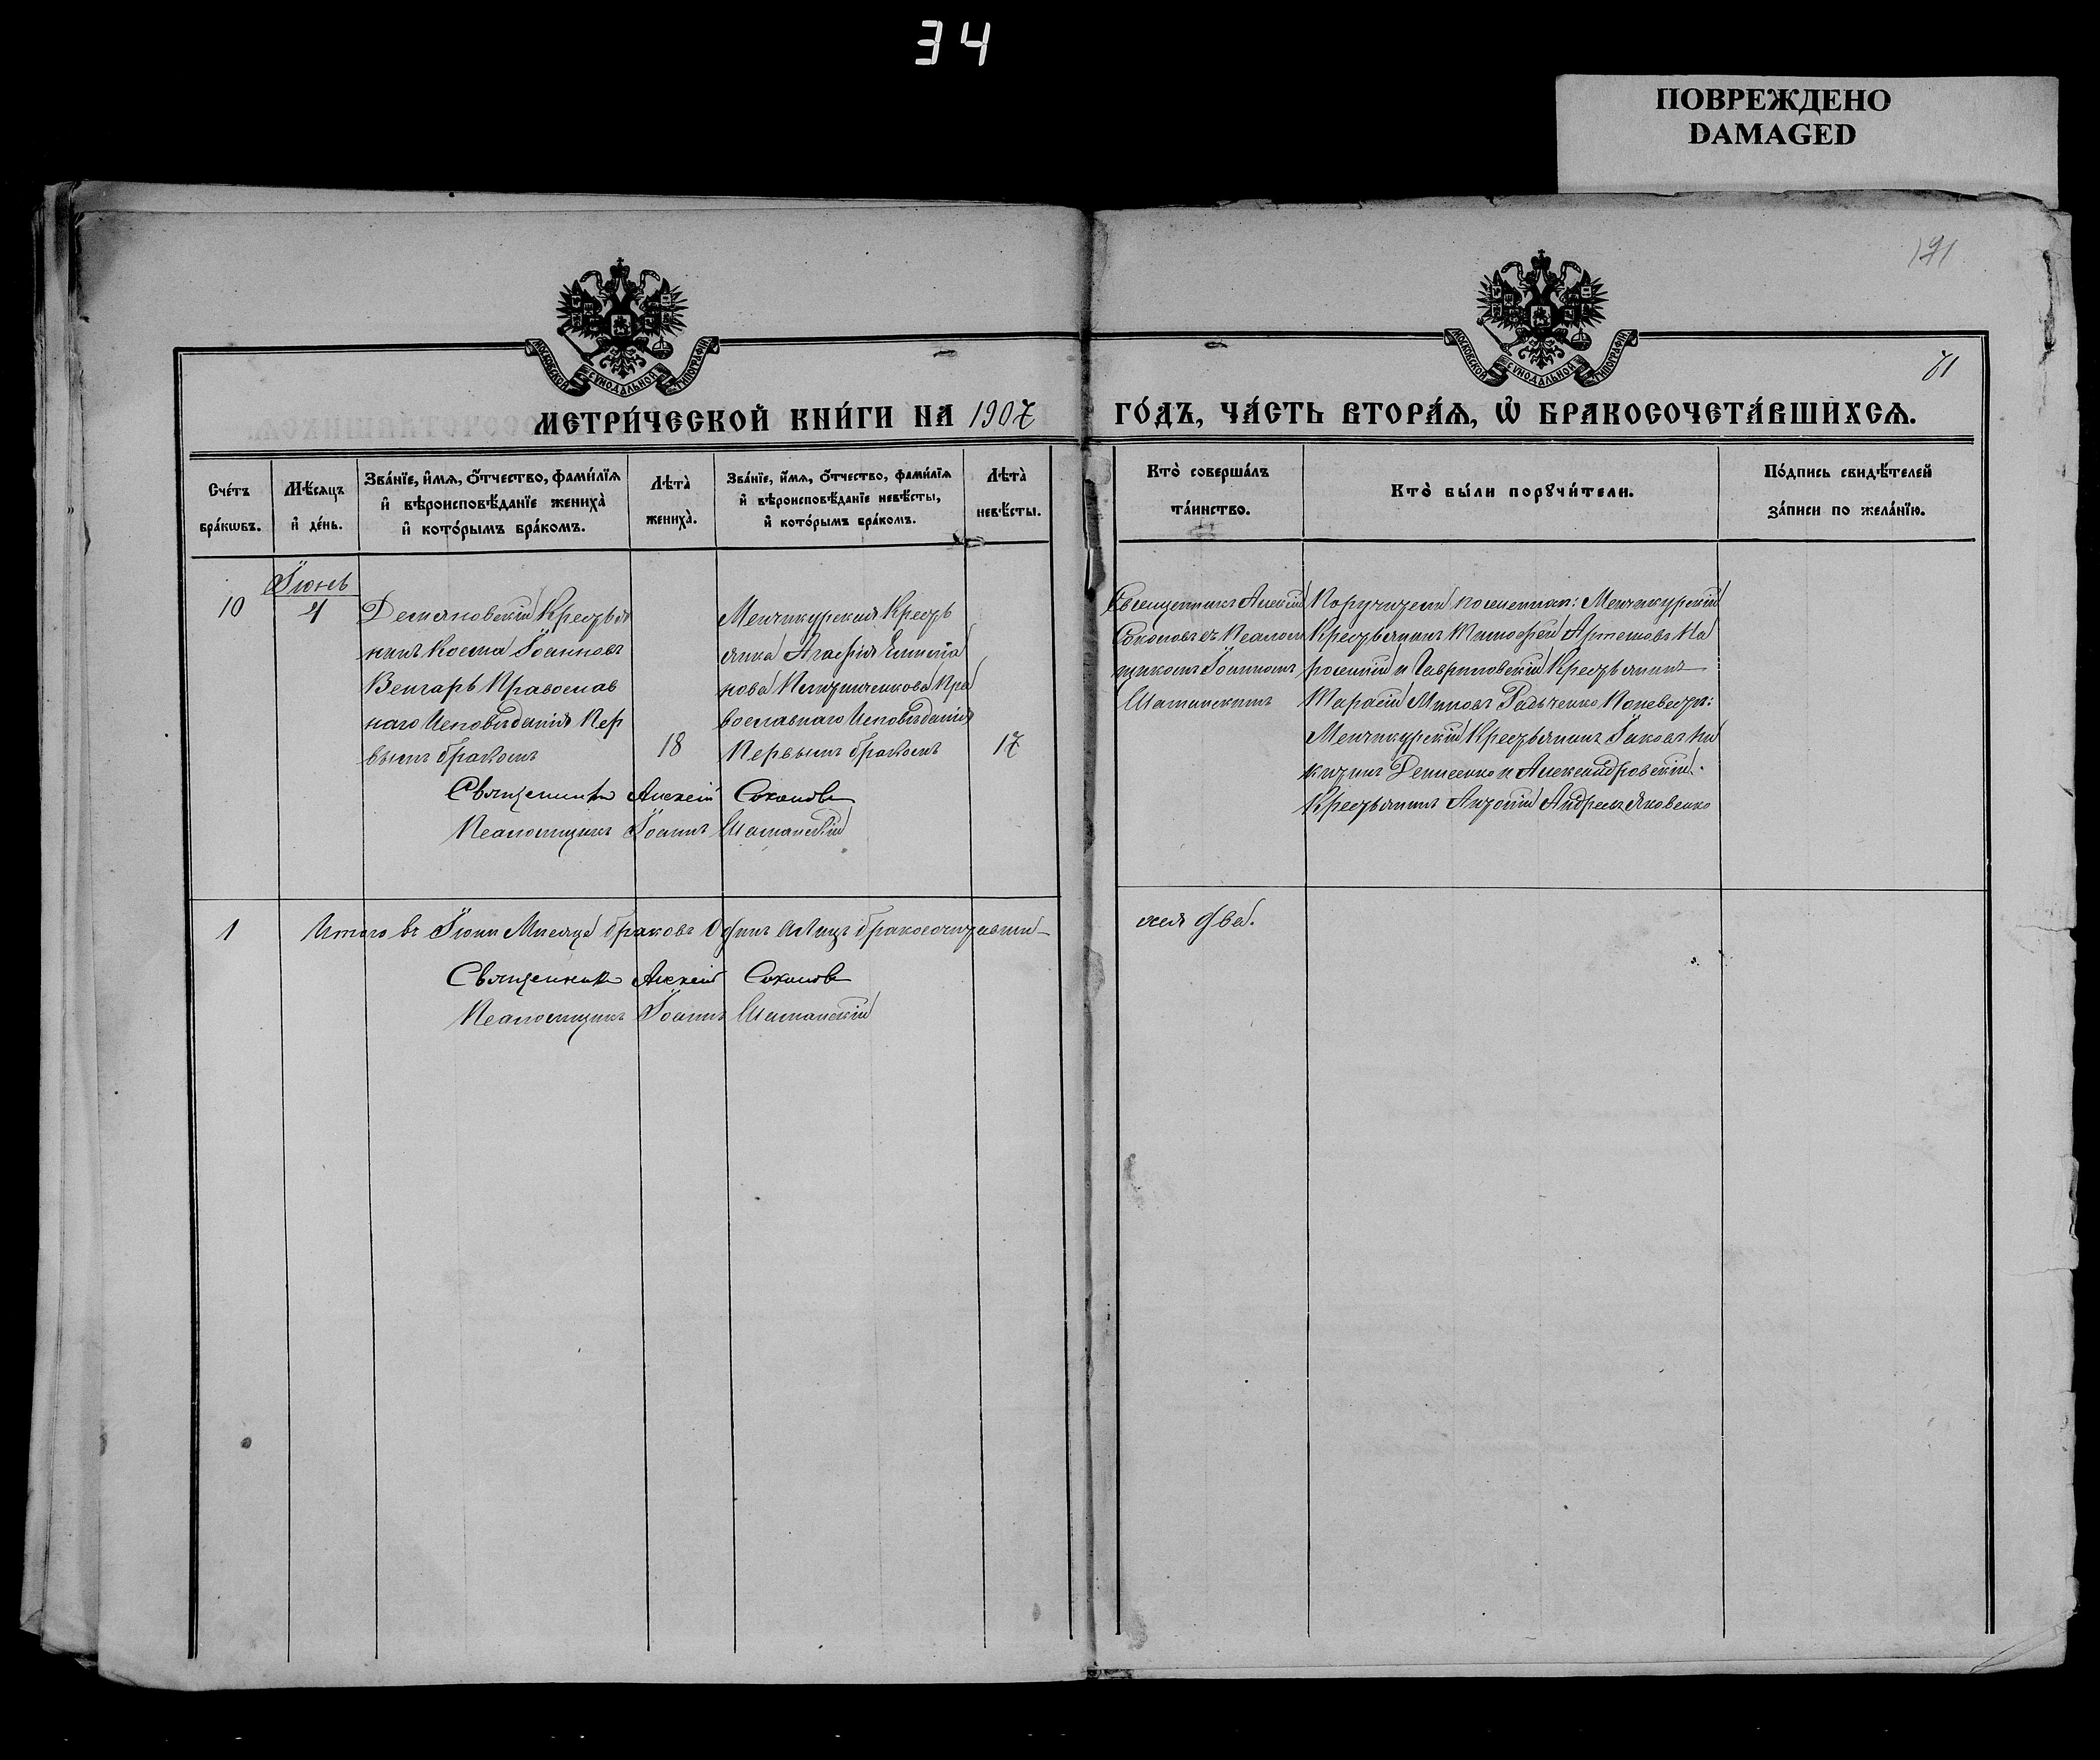 34
ПОВРЕЖДЕНО
DAMAGED
191
МОСКОВСКОЙ СѴНОДАЛЬНОЙ ТИПОГРАФІИ
МОСКОВСКОЙ СѴНОДАЛЬНОЙ ТИПОГРАФІИ
71
МЕТРИ́ЧЕСКОЙ КНИ́ГИ НА 1907
ГО́ДЪ, ЧА́СТЬ ВТОРА́Я, Ѽ БРАКОСОЧЕТА́ВШИХСЯ.
Сче́тъ
бра́кѡвъ.
Мѣ́сяцъ
и҆ де́нь.
Зва́нїе, и҆́мя, ѻ҆́тчество, фами́лїя
и҆ вѣроисповѣ́данїе жениха̀
и҆ кото́рымъ бра́комъ.
Лѣта̀
жениха̀.
Зва́нїе, и҆́мя, ѻ҆́тчество, фами́лїя
и҆ вѣроисповѣ́данїе невѣ́сты,
и҆ кото́рымъ бра́комъ.
Лѣта̀
невѣ́сты.
Кто̀ соверша́лъ
та́инство.
Кто̀ бы́ли порꙋчи́тели.
По́дпись свидѣ́телей
за́писи по жела́нїю.
10
Іюнь
4
Демяновскій Крестья
нинъ Косма Іоанновъ
Венгаръ Православ
наго Исповѣданія Пер
вымъ бракомъ
18
Менчикурская Кресть
янка Агафія Емелїа
нова Православнаго
вославнаго Исповѣданія
Первымъ бракомъ
17
Священникъ Алексій
Соколовъ съ Псалом
щикомъ Іоанномъ
Шаманскимъ
Поручители по женихѣ: Менчикурскій
Крестьянинъ Тимофей Артемовъ
и Гавриловскій Крестьянинъ
Тарасій Миновъ Радченко По невѣстѣ:
Менчикурскій Крестьянинъ Іаковъ Ни
китинъ Денисенко и Александровскій
Крестьянинъ Антоній Андреевъ Яковенко
Священникъ Алексій Соколовъ
Псаломщикъ Іоаннъ Шаманскій
1
Итого въ Іюни Мисяце браковъ Одинъ А Лицъ бракосочитавши–
хся два.
Священникъ Алексій Соколовъ
Псаломщикъ Іоаннъ Шаманскій